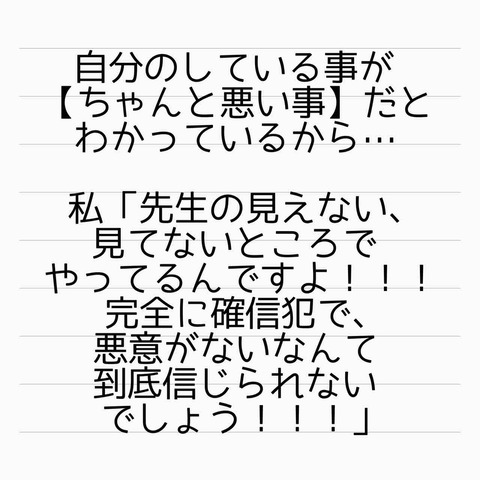 自分のしている事が
【ちゃんと悪い事】だと
わかっているから…
私「先生の見えない、
見てないところで
やってるんですよ！！！
完全に確信犯で、
悪意がないなんて
到底信じられない
でしょう！！！」